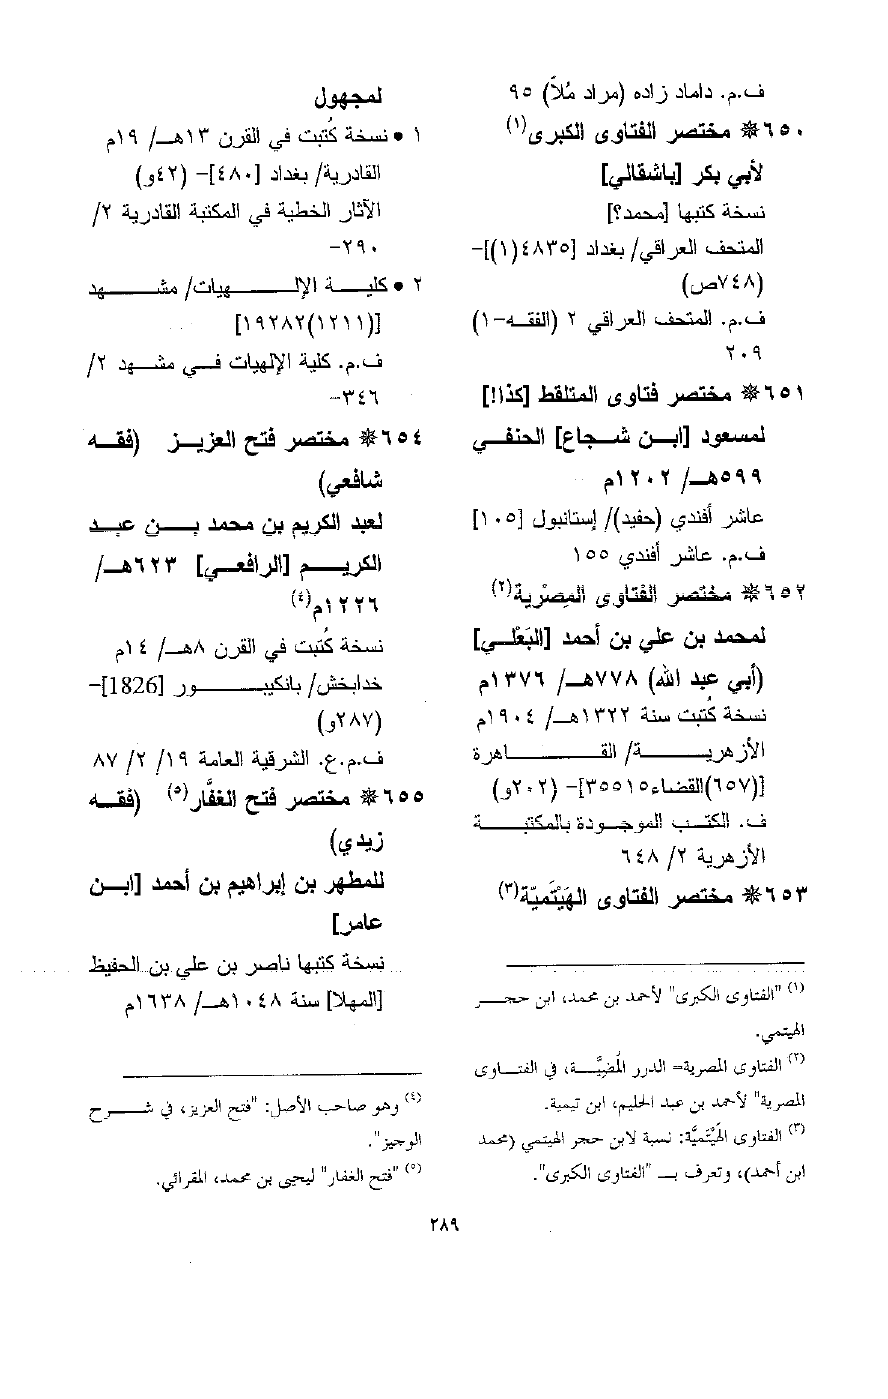 ف.م. داماد زاده (مراد مُلاّ) ٩٥
٦٥٠ ❋ مختصر الفتاوى الكبرى(١)
لأبي بكر [باشقالي]
نسخة كتبها [محمد؟]
المتحف العراقي/ بغداد [٤٨٣٥(١)]–
(٧٤٨ص)
ف.م. المتحف العراقي ٢ (الفقه–١)
٢٠٩
٦٥١ ❋ مختصر فتاوى المتلقط [كذا!]
لمسعود [ابن شجاع] الحنفي
٥٩٩هـ/ ١٢٠٢م
عاشر أفندي (حفيد)/ إستانبول [١٠٥]
ف.م. عاشر أفندي ١٥٥
٦٥٢ ❋ مختصر الفتاوى المِصْرية(٢)
لمحمد بن علي بن أحمد [البَعْلي]
(أبي عبد الله) ٧٧٨هـ/ ١٣٧٦م
نسخة كُتبت سنة ١٣٢٢هـ/ ١٩٠٤م
الأزهرية/ القاهرة
[(٦٥٧)القضاء٣٥٥١٥]– (٢٠٢و)
ف. الكتب الموجودة بالمكتبة
الأزهرية ٢/ ٦٤٨
٦٥٣ ❋ مختصر الفتاوى الهَيْتَميّة(٣)
لمجهول
١ • نسخة كُتبت في القرن ١٣هـ/ ١٩م
القادرية/ بغداد [٤٨٠]– (٤٢و)
الآثار الخطية في المكتبة القادرية ٢/
٢٩٠–
٢ • كلية الإلهيات/ مشهد
[(١٢١١)١٩٢٨٢]
ف.م. كلية الإلهيات في مشهد ٢/
٣٤٦–
٦٥٤ ❋ مختصر فتح العزيز (فقه
شافعي)
لعبد الكريم بن محمد بن عبد
الكريم [الرافعي] ٦٢٣هـ/
١٢٢٦م(٤)
نسخة كُتبت في القرن ٨هـ/ ١٤م
خدابخش/ بانكيبور [1826]–
(٢٨٧و)
ف.م.ع. الشرقية العامة ١٩/ ٢/ ٨٧
٦٥٥ ❋ مختصر فتح الغفَّار(٥) (فقه
زيدي)
للمطهر بن إبراهيم بن أحمد [ابن
عامر]
نسخة كتبها ناصر بن علي بن الحفيظ
[المهلا] سنة ١٠٤٨هـ/ ١٦٣٨م
(١) "الفتاوى الكبرى" لأحمد بن محمد، ابن حجر
الهيتمي.
(٢) الفتاوى المصرية= الدرر المُضِيَّة، في الفتاوى
المصرية" لأحمد بن عبد الحليم، ابن تيمية.
(٣) الفتاوى الهَيْتَميَّة: نسبة لابن حجر الهيتمي (محمد
ابن أحمد)، وتعرف بـ "الفتاوى الكبرى".
(٤) وهو صاحب الأصل: "فتح العزيز، في شرح
الوجيز".
(٥) "فتح الغفار" ليحيى بن محمد، المقرائي.
٢٨٩